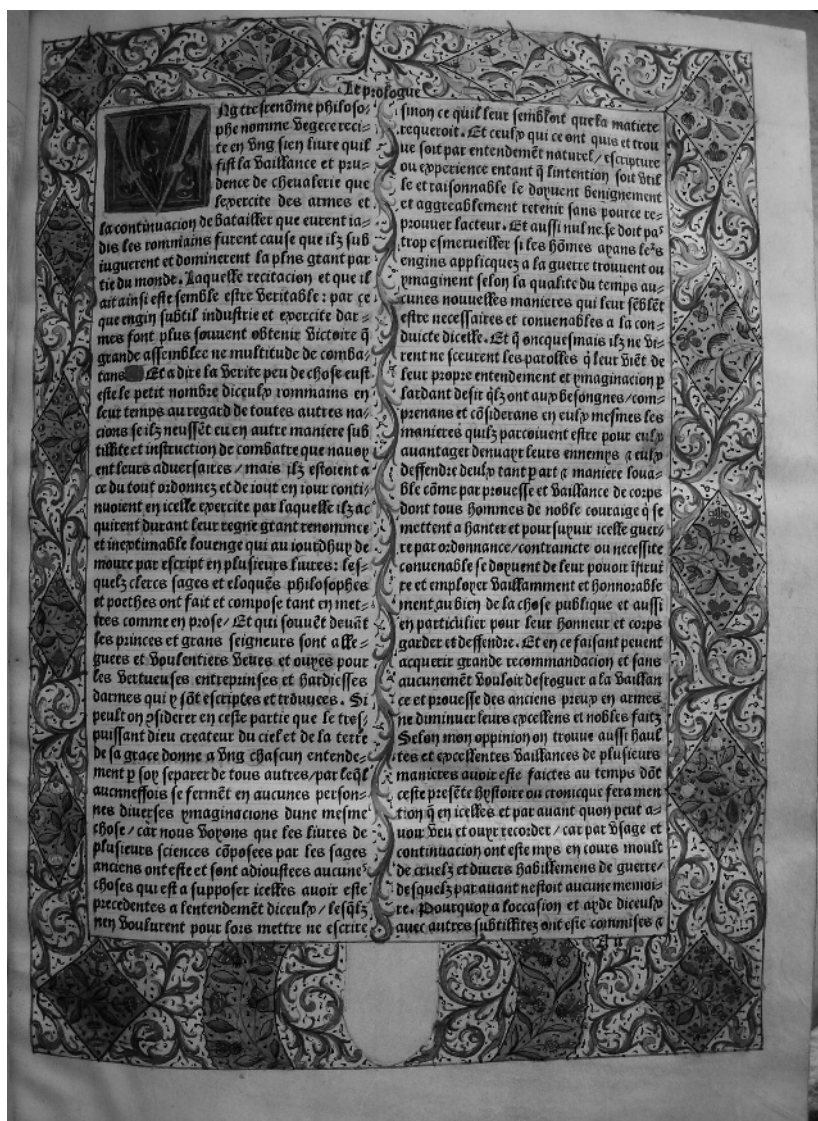 Le prologue
Vng tresrenõme philoso-
phe nomme Vegece reci-
te en Vng sien liure quil
fist la Vaillance et pru-
dence de cheualerie que
lexercite des armes et
la continuacion de batailler que eurent ia-
dis les rommains furent cause que ilz sub
iuguerent et dominerent la plus grant par
tie du monde. Laquelle recitacion et que il
ait ainsi este semble estre Veritable: par ce
que engin subtil industrie et exercite dar-
mes font plus souuent obtenir Victoire q̃
grande assemblee ne multitude de comba-
tans Et a dire la Verite peu de chose eust
este le petit nombre diceulx rommains en
leur temps au regard de toutes autres na-
cions se ilz neussẽt eu en autre maniere sub
tillite et instruction de combatre que nauoy
ent leurs aduersaires/mais ilz estoient a
ce du tout ordonnez et de iour en iour conti-
nuoient en icelle exercite par laquelle ilz ac
quirent durant leur regne grant renommee
et inextimable louenge qui au iourdhuy de
moure par escript en plusieurs liures: les-
quelz clercs sages et eloquẽs philosophes
et poethes ont fait et compose tant en met-
tres comme en prose/Et qui souuẽt deuãt
les princes et grans seigneurs sont alle-
guees et Voulentiers Veues et ouyes pour
les Vertueuses entreprinses et hardiesses
darmes qui y sõt escriptes et trouuees. Si
peult on ꝯsiderer en ceste partie que le tres-
puissant dieu createur du ciel et de la terre
de sa grace donne a Vng chascun entende-
ment p soy separer de tous autres/par leq̃l
aucunneffois se fermẽt en aucunes person-
nes diuerses ymaginacions dune mesme
chose/car nous Voyons que les liures de
plusieurs sciences cõposees par les sages
anciens ont este et sont adioustees aucunes
choses qui est a supposer icelles auoir este
precedentes a lentendemẽt diceulx/lesq̃lz
nen Voulurent pour lors mettre ne escrire
sinon ce quil leur sembloit que la matiere
requeroit. Et ceulx qui ce ont quis et trou
ue soit par entendemẽt naturel/escripture
ou experience entant q̃ lintention soit Vtil
le et raisonnable le doyuent benignement
et aggreablement retenir sans pource re-
prouuer lacteur. Et aussi nul ne se doit pas
trop esmerueiller si les hõmes ayans leᵘʳˢ
engins applicquez a la guerre trouuent ou
ymaginent selon la qualite du temps au-
cunes nouuelles manieres qui leur sẽblẽt
estre necessaires et conuenables a la con-
duicte dicelle. Et q̃ oncquesmais ilz ne Vi-
rent ne sceurent les parolles q̃ leur Viẽt de
leur propre entendement et ymaginacion p
lardant desir q̃lz ont aux besongnes/com-
prenans et cõsiderans en eulx mesmes les
manieres quilz parcoiuent estre pour eulx
auantager denuayr leurs ennemys ⁊ eulx
deffendre deulx tant p art ⁊ maniere loua-
ble cõme par prouesse et Vaillance de corps
dont tous hommes de noble couraige q̃ se
mettent a hanter et poursuyuir icelle guer-
re par ordonnance/contraincte ou necessite
conuenable se doyuent de leur pouoir ĩstrui
re et employer Vaillamment et honnorable
ment au bien de la chose publique et aussi
en particulier pour leur honneur et corps
garder et deffendre. Et en ce faisant peuent
acquerir grande recommandacion et sans
aucunemẽt Vouloir desroguer a la Vaillan
ce et prouesse des anciens preux en armes
ne diminuer leurs excellens et nobles faitz
Selon mon oppinion on trouue aussi haul
tes et excellentes Vaillances de plusieurs
manieres auoir este faictes au temps dõt
ceste presẽte hystoire ou cronicque fera men
tion q̃ en icelles et par auant quon peut a-
uoir Veu et ouyr recorder/car par Vsage et
continuacion ont este mys en cours moult
de cruelz et diuers habillemens de guerre/
desquelz par auant nestoit aucune memoi-
re. Pourquoy a loccasion et ayde diceulx
auec autres subtillitez ont este commises ⁊